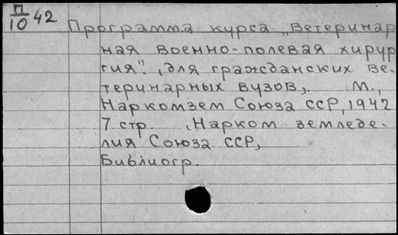 П/10 42
Программа курса „Ветеринар
ная военно-полевая хирур
гия". (для гражданских ве-
теринарных вузов). М.,
Наркомзем Союза ССР, 1942
7 стр. (Нарком земледе-
лия Союза ССР)
Библиогр.